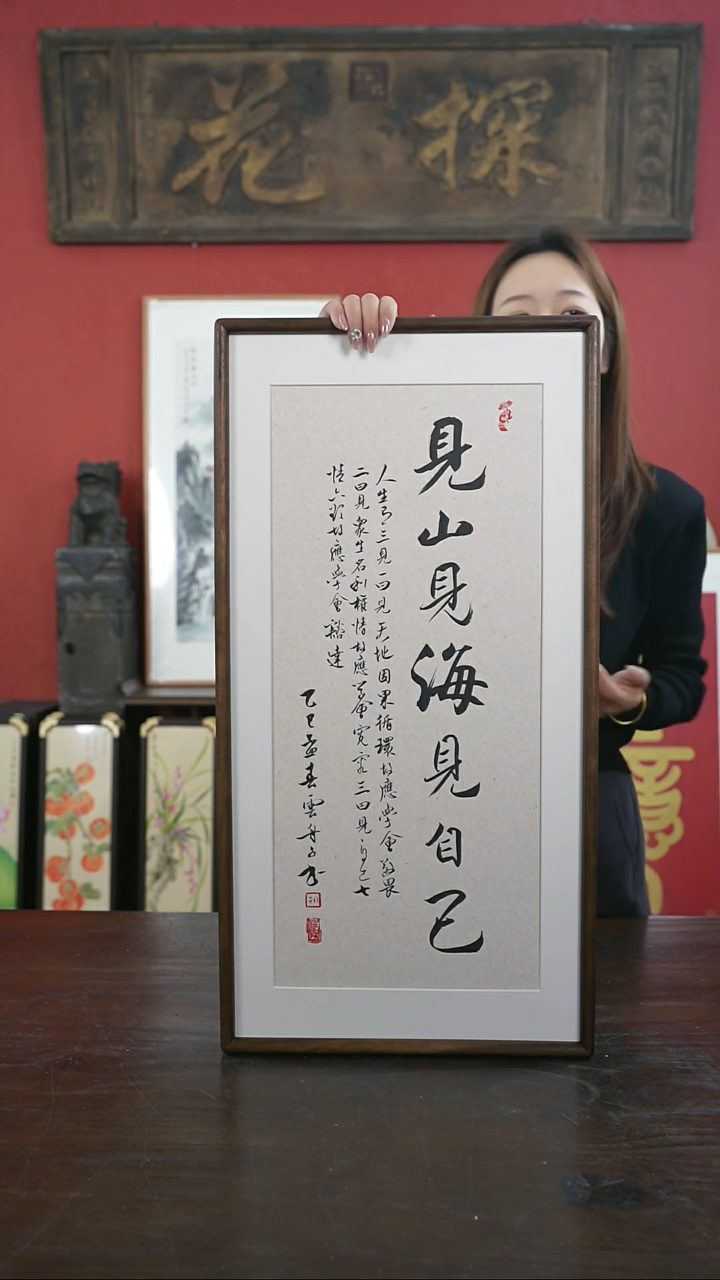 探花
見山見海見自己
人生有三見一曰見天地因果循環故應學會敬畏
二曰見衆生名利權情故應学會寬容三曰見自己七
情六欲故應學會豁達
乙巳孟春雲舟子书